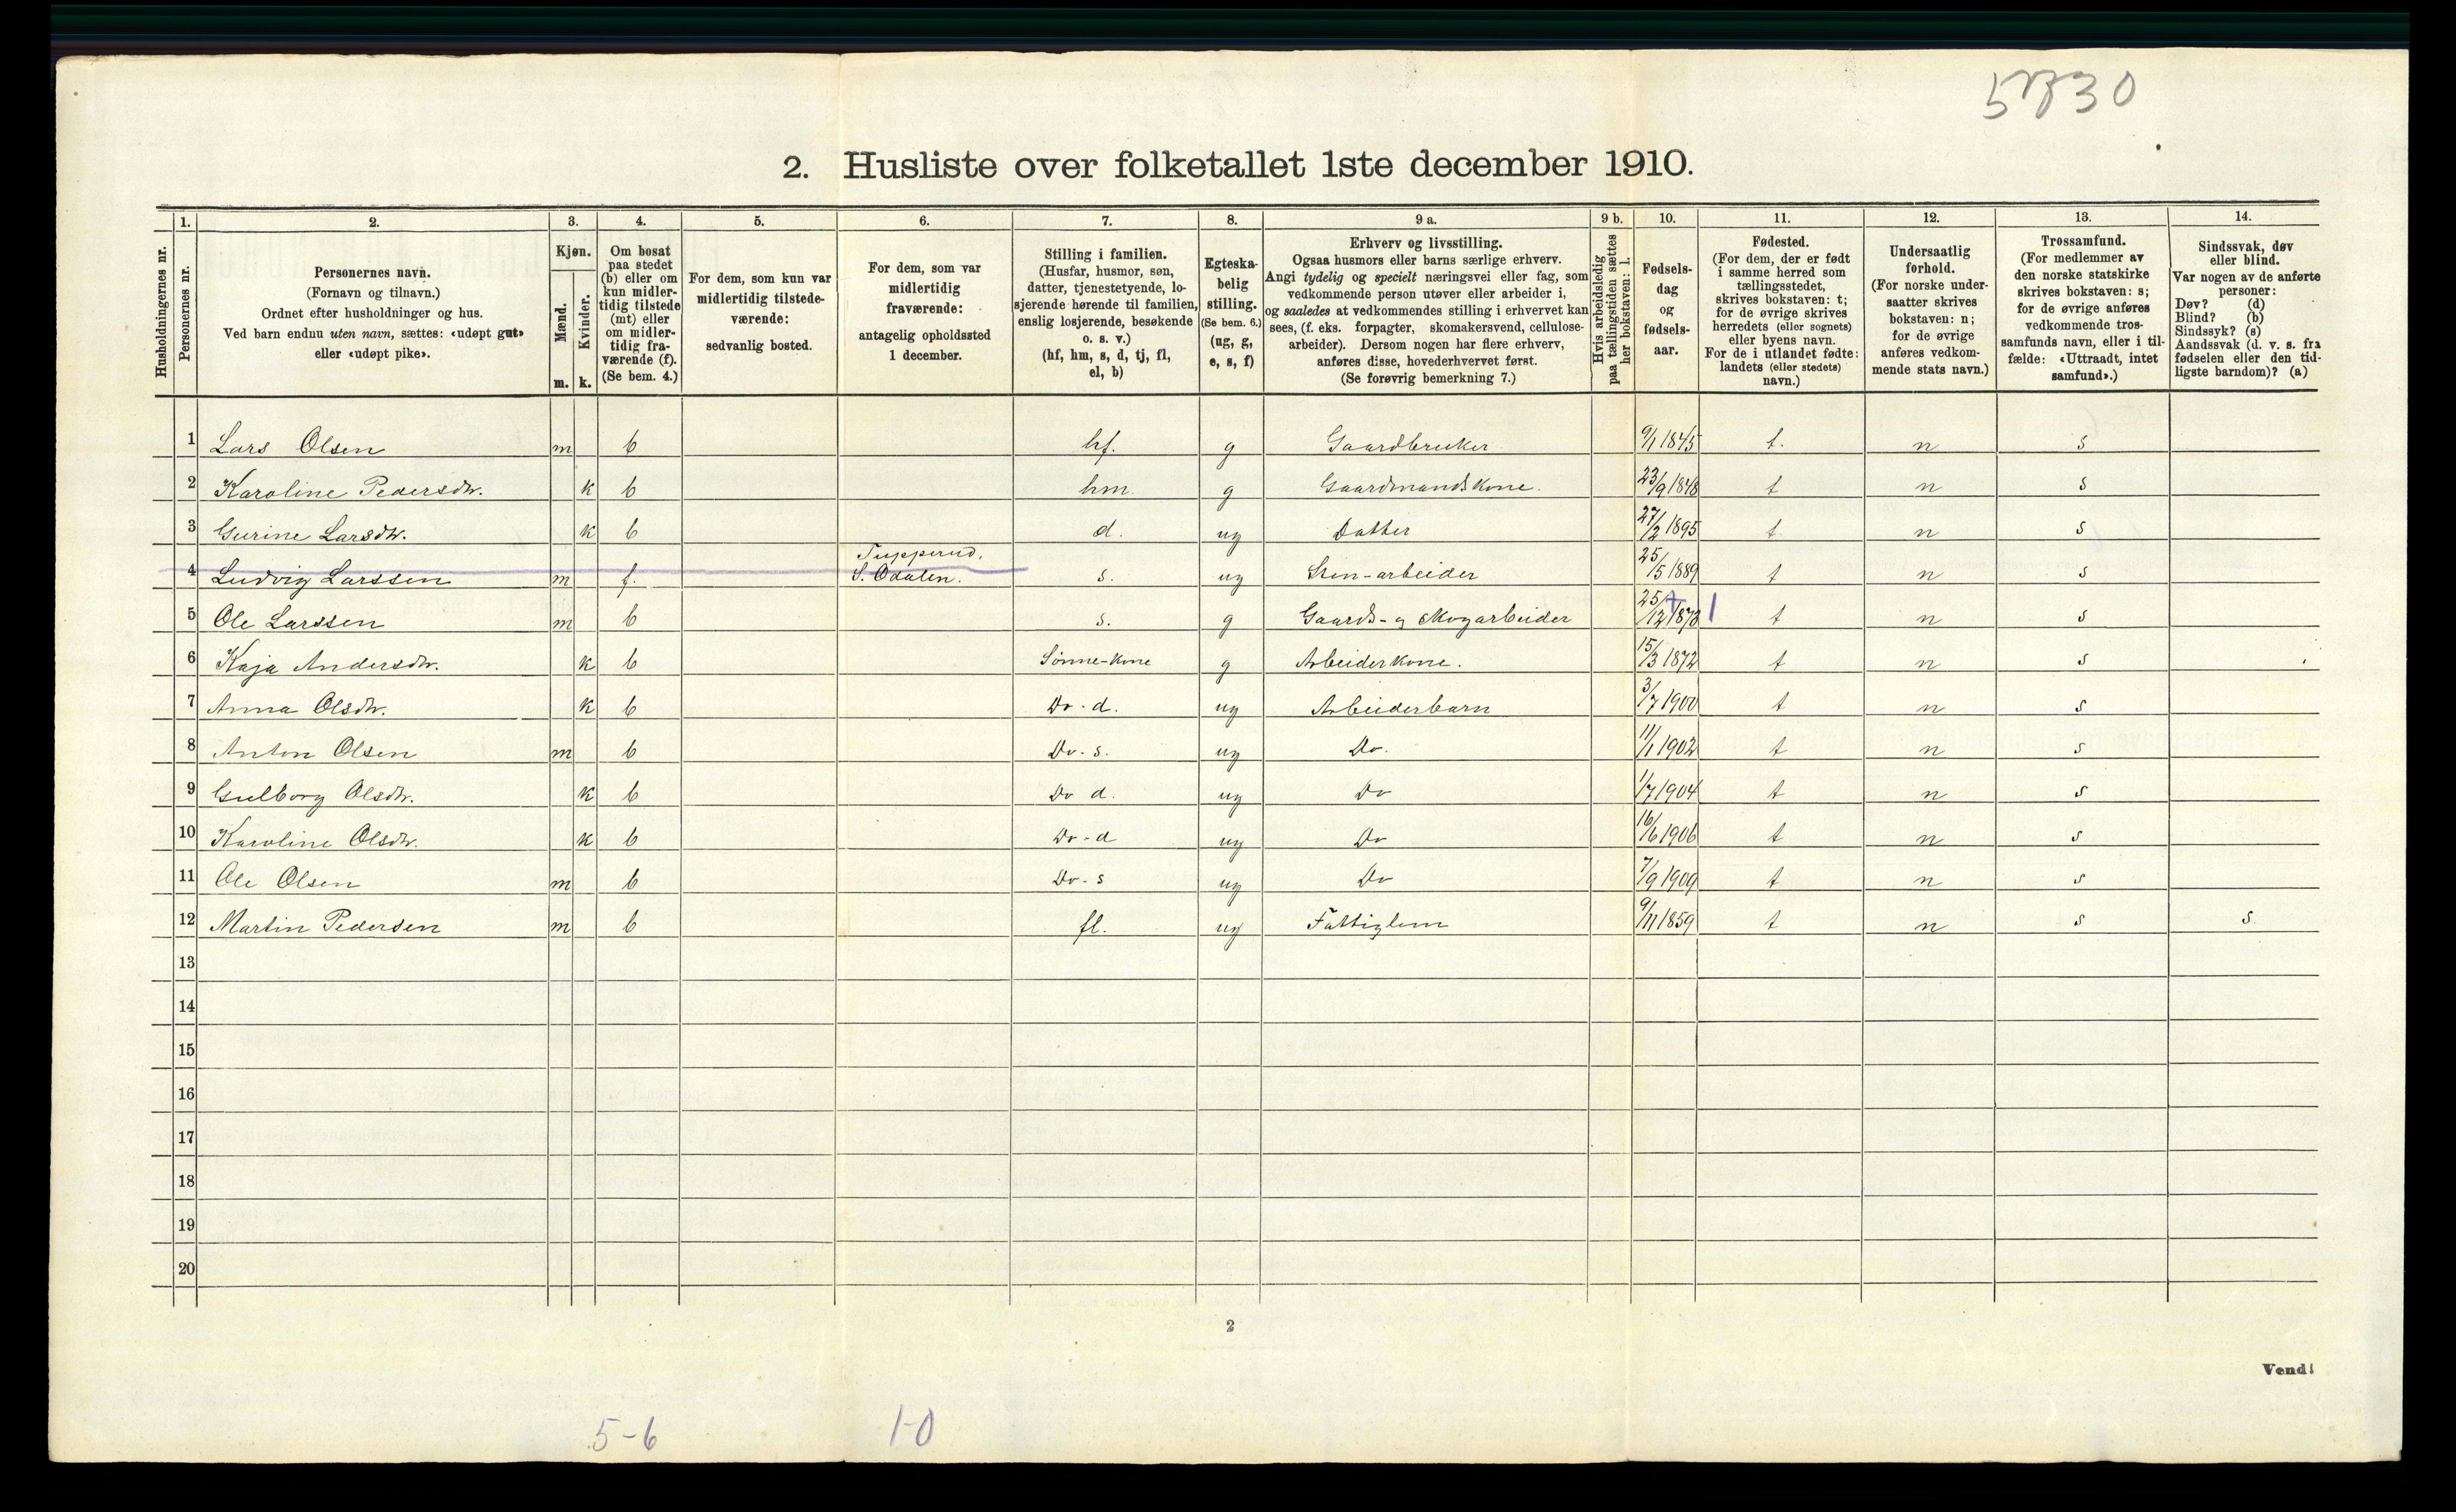 5830
2. Husliste over folketallet 1ste december 1910.
Husholdningernes nr.
1.
Personernes nr.
2.
Personernes navn.
(Fornavn og tilnavn.)
Ordnet efter husholdninger og hus.
Ved barn endnu uten navn, sættes: «udøpt gut»
eller «udøpt pike».
3.
Kjøn.
Mænd.
Kvinder.
m. k.
4.
Om bosat
paa stedet
(b) eller om
kun midler-
tidig tilstede
(mt) eller
om midler-
tidig fra-
værende (f).
(Se bem. 4.)
5.
For dem, som kun var
midlertidig tilstede-
værende:
sedvanlig bosted.
6.
For dem, som var
midlertidig
fraværende:
antagelig opholdssted
1 december.
7.
Stilling i familien.
(Husfar, husmor, søn,
datter, tjenestetyende, lo-
sjerende hørende til familien,
enslig losjerende, besøkende
o. s. v.)
(hf, hm, s, d, tj, fl,
el, b)
8.
Egteska-
belig
stilling.
(Se bem. 6.)
(ug, g,
e, s, f)
9 a.
Erhverv og livsstilling.
Ogsaa husmors eller barns særlige erhverv.
Angi tydelig og specielt næringsvei eller fag, som
vedkommende person utøver eller arbeider i,
og saaledes at vedkommendes stilling i erhvervet kan
sees, (f. eks. forpagter, skomakersvend, cellulose-
arbeider). Dersom nogen har flere erhverv,
anføres disse, hovederhvervet først.
(Se forøvrig bemerkning 7.)
9 b.
Hvis arbeidsledig
paa tællingstiden sættes
her bokstaven: l.
10.
Fødsels-
dag
og
fødsels-
aar.
11.
Fødested.
(For dem, der er født
i samme herred som
tællingsstedet,
skrives bokstaven: t;
for de øvrige skrives
herredets (eller sognets)
eller byens navn.
For de i utlandet fødte:
landets (eller stedets)
navn.)
12.
Undersaatlig
forhold.
(For norske under-
saatter skrives
bokstaven: n;
for de øvrige
anføres vedkom-
mende stats navn.)
13.
Trossamfund.
(For medlemmer av
den norske statskirke
skrives bokstaven: s;
for de øvrige anføres
vedkommende tros-
samfunds navn, eller i til-
fælde: «Uttraadt, intet
samfund».)
14.
Sindssvak, døv
eller blind.
Var nogen av de anførte
personer:
Døv? (d)
Blind? (b)
Sindssyk? (s)
Aandssvak (d. v. s. fra
fødselen eller den tid-
ligste barndom)? (a)
1 Lars Olsen m b hf. g Gaardbruker 9/1 1845 t. n s
2 Karoline Pedersdtr. k b hm. g Gaardmandskone. 23/9 1848 t n s
3 Gurine Larsdtr. k b d. ug Datter 27/2 1895 t n s
4 Ludvig Larssen m f. Tupperud, S. Odalen. s. ug Sten-arbeider 25/5 1889 t n s
5 Ole Larssen m b s. g Gaards- og skogarbeider 25/12 1873 t n s
6 Kaja Andersdtr. k b Sønne-kone g Arbeiderkone. 15/3 1872 t n s
7 Anna Olsdtr. k b Do - d. ug Arbeiderbarn 3/7 1900 t n s
8 Anton Olsen m b Do - s. ug Do. 11/1 1902 t n s
9 Gulborg Olsdtr. k b Do d. ug Do 1/7 1904 t n s
10 Karoline Olsdtr. k b Do - d ug Do 16/6 1906 t n s
11 Ole Olsen m b Do - s ug Do 7/9 1909 t n s
12 Martin Pedersen m b fl. ug Fattiglem 9/11 1859 t n s s.
13
14
15
16
17
18
19
20
2
Vend!
5-6 1-0